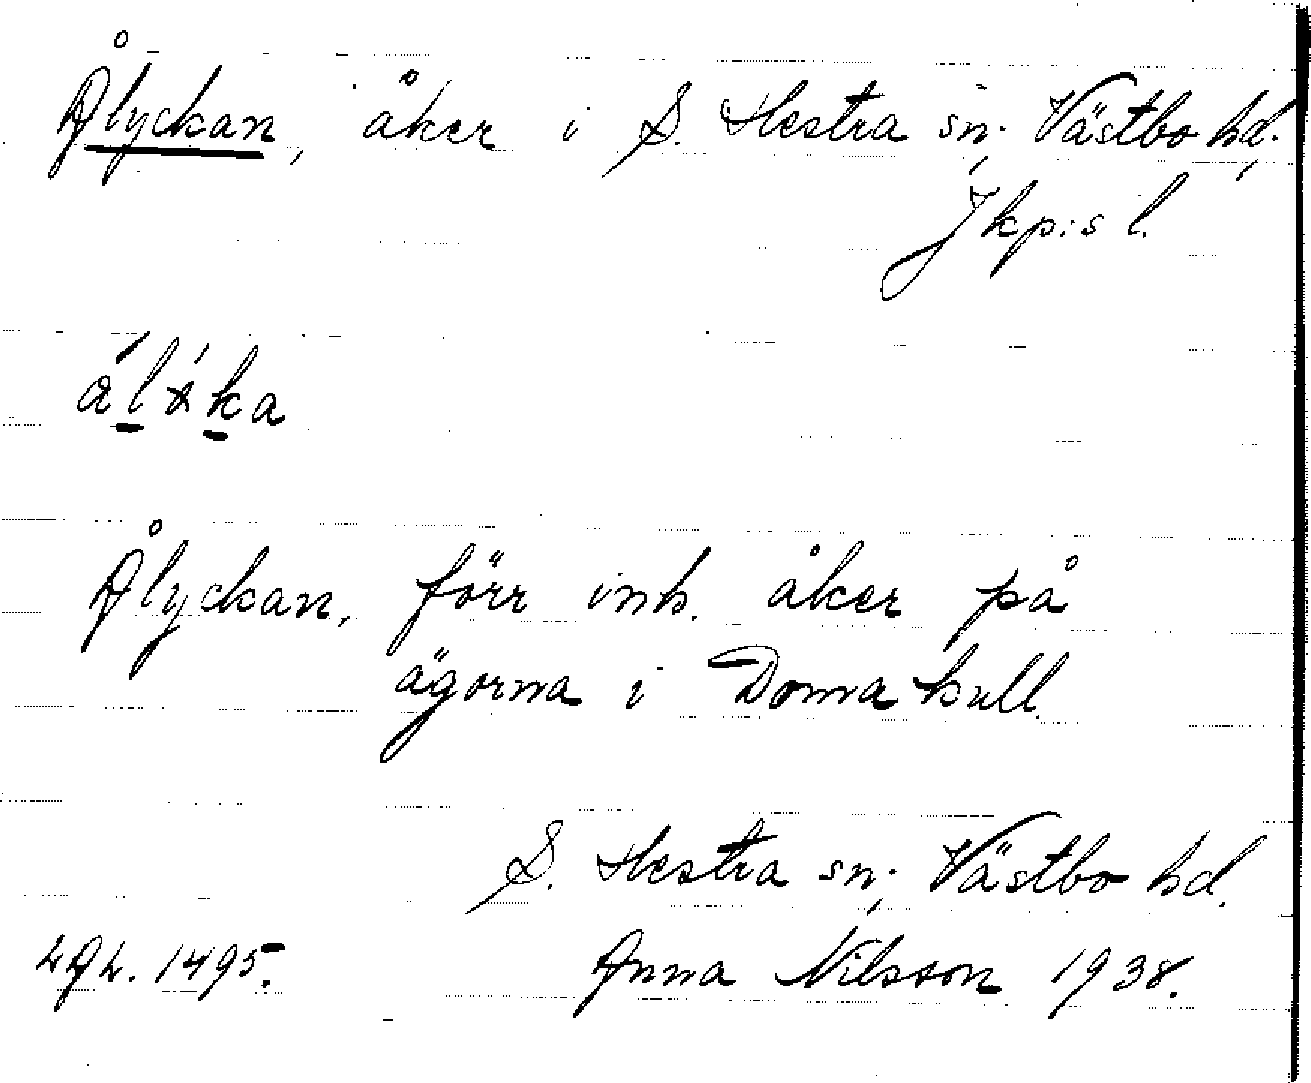 Ålyckan, åker i S. Hestra sn, Västbo hd,
Jkp:s l.
Ålyckan, förr inh. åker på
ägorna i Domakull.
S. Hestra sn, Västbo hd.
1495. Anna Nilsson 1938.